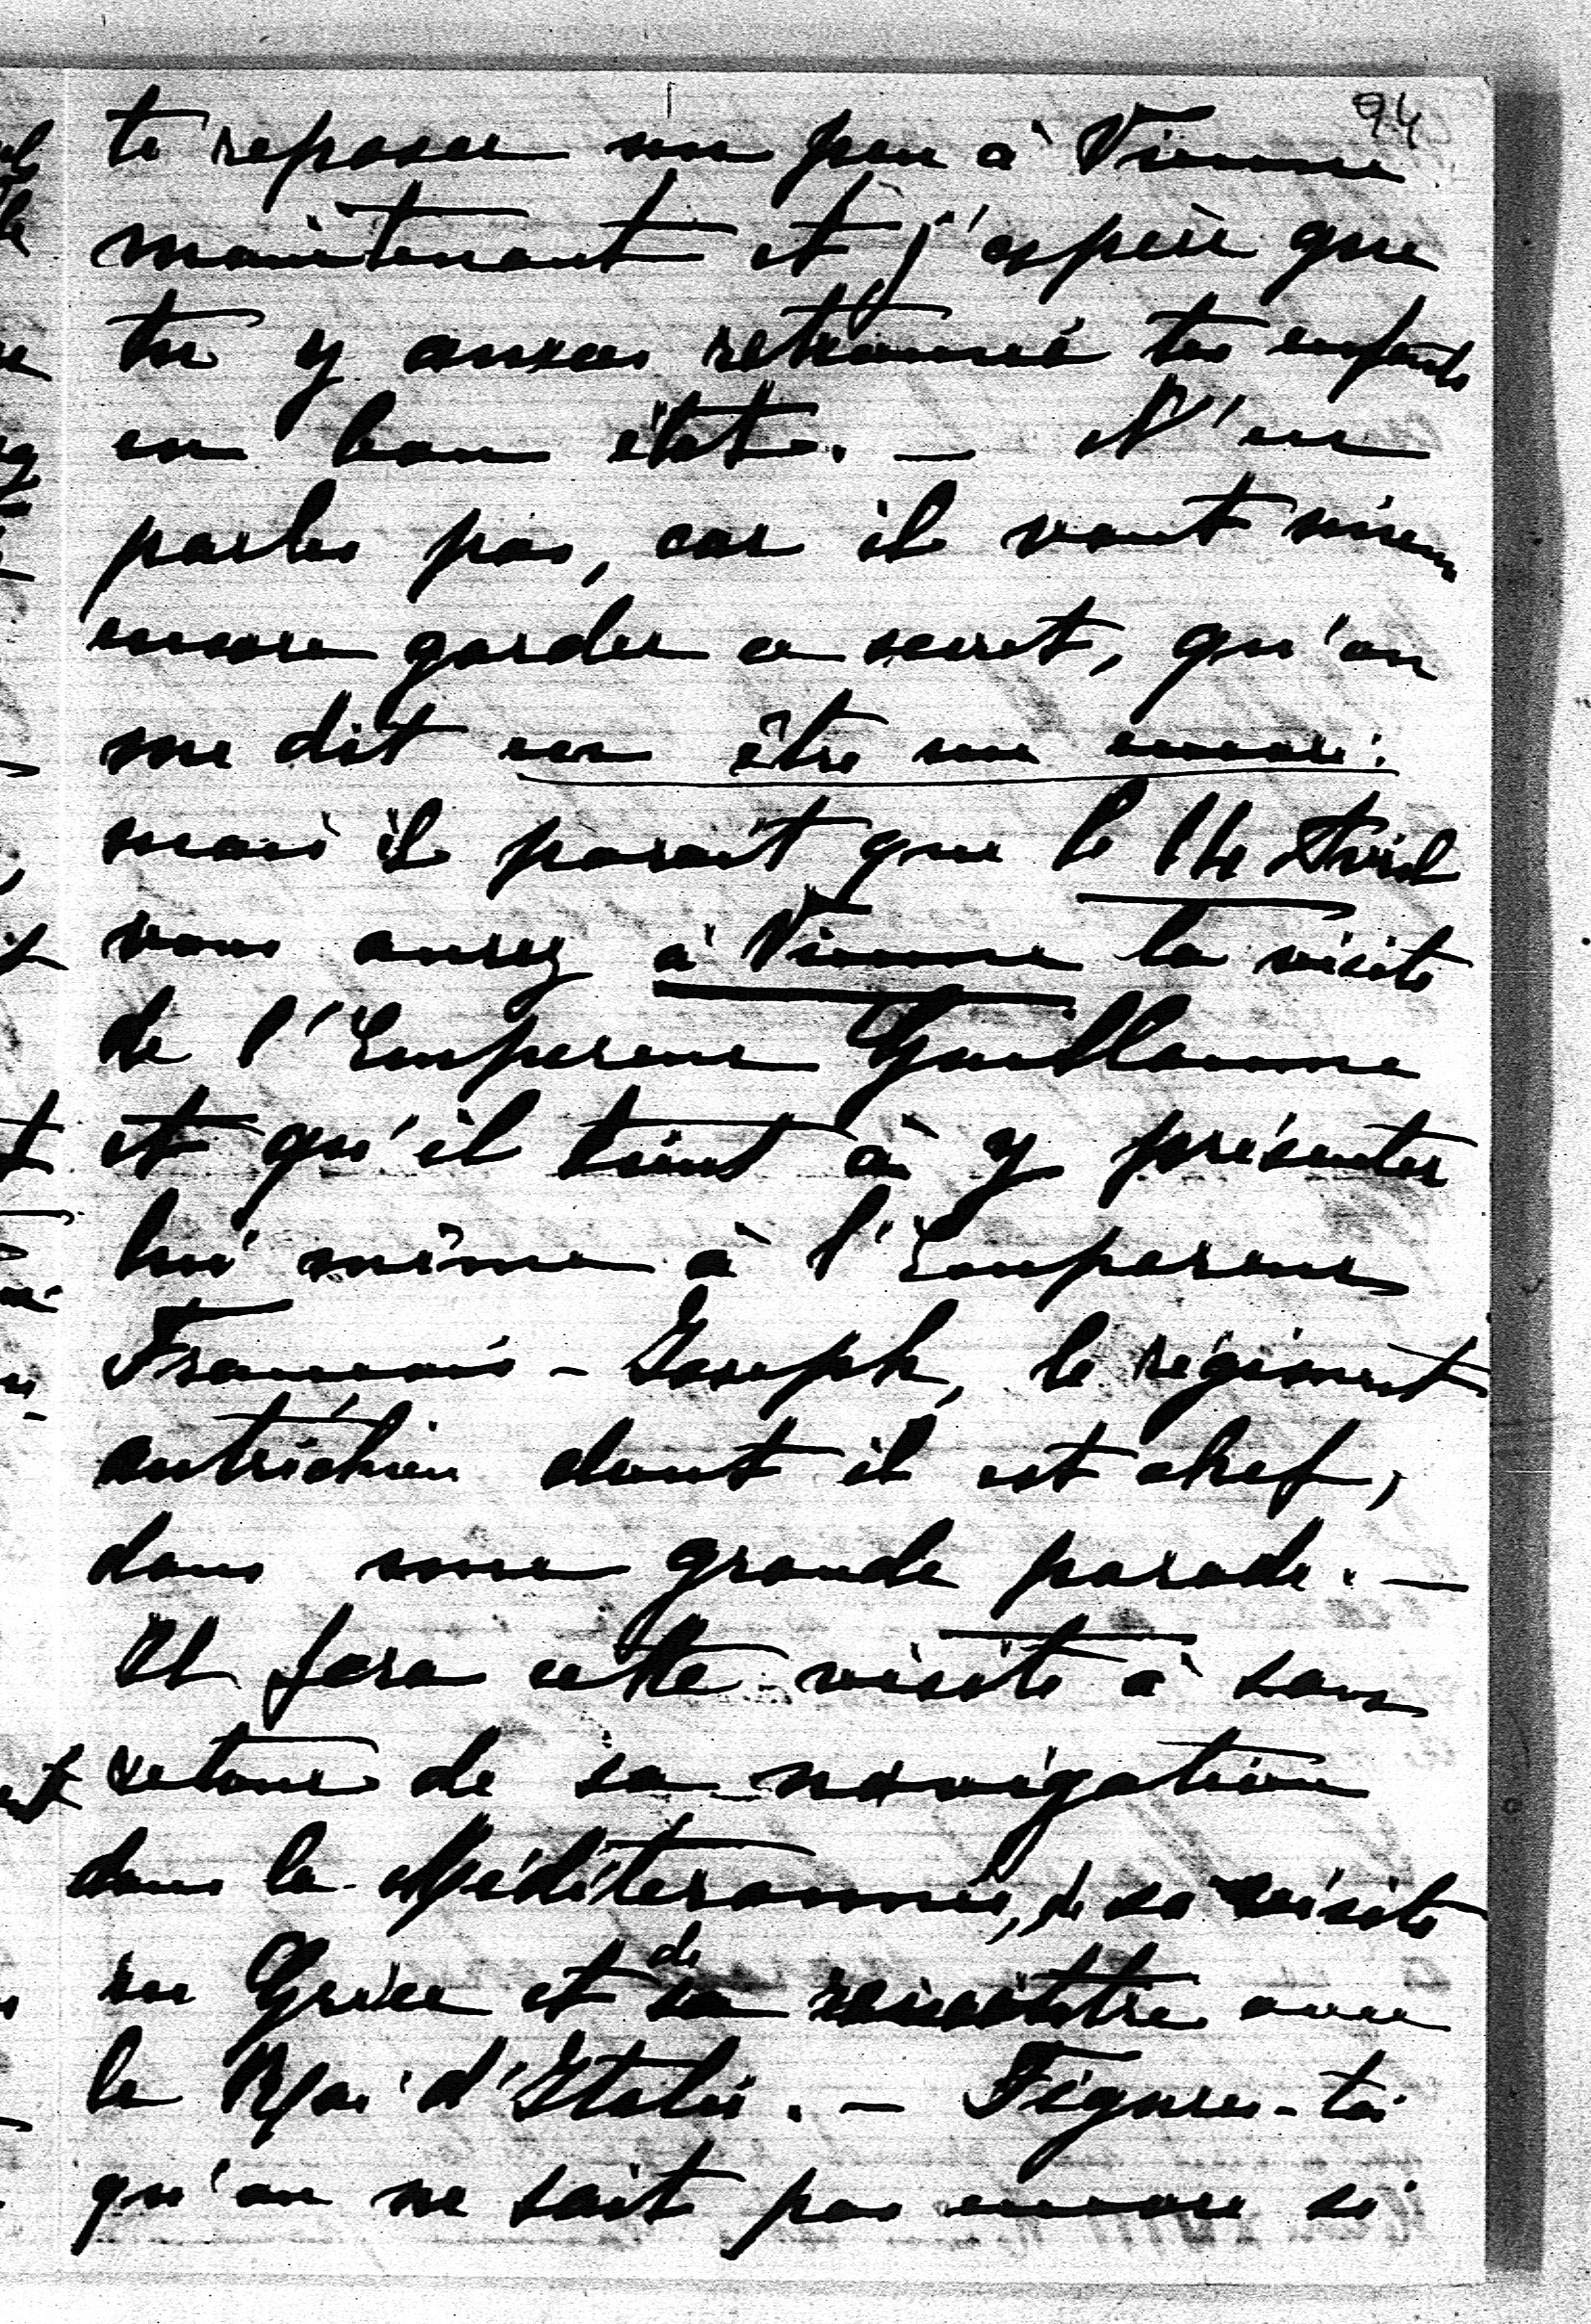 94
te reposer un peu à Vienne
maintenant et j'espère que
tu y auras retrouvé tes enfants
en bon état. — N'en
parles pas, car il vaut mieux
encore garder ce secret, qu'on
me dit en être un encore:
mais il parait que le 14 Avril
vous aurez à Vienne la visite
de l'Empereur Guillaume
et qu'il tient à y présenter
lui même à l'Empereur
François-Joseph, le régiment
autrichien dont il est chef,
dans une grande parade. —
Il fera cette visite à son
retour de sa navigation
dans la Méditerannée, de sa visite
en Grèce et de sa rencontre avec
le Roi d'Italie. — Figures-toi
qu'on ne sait pas encore si